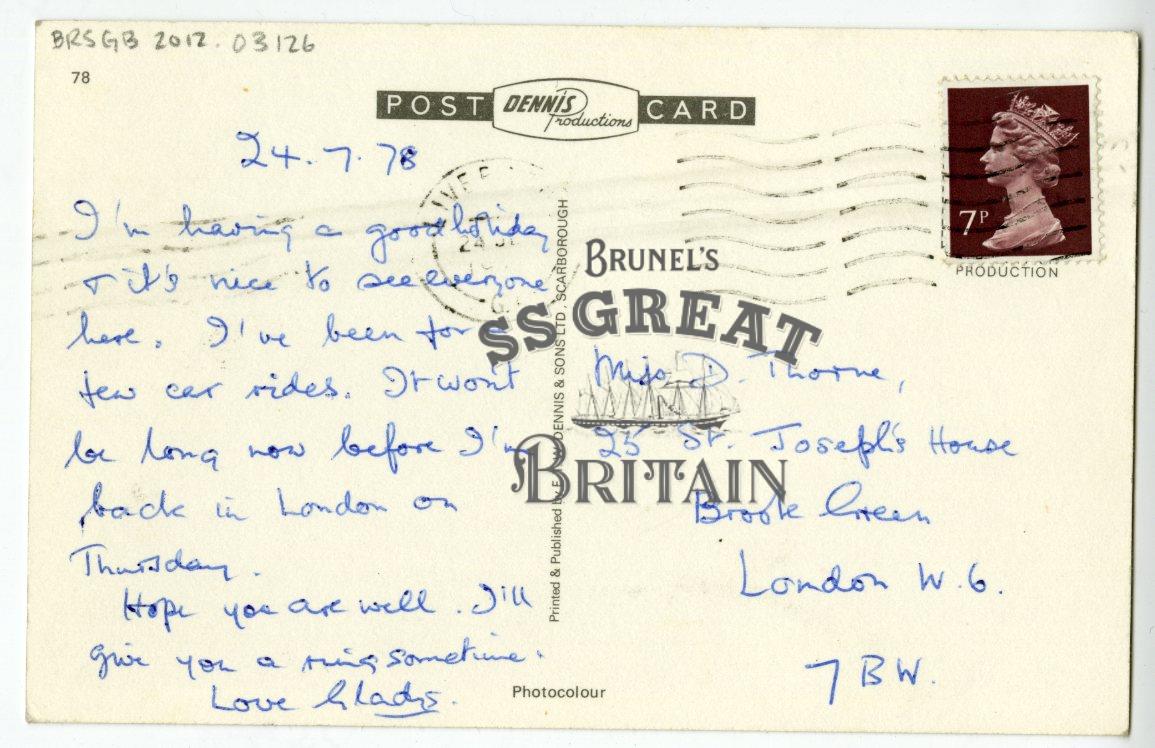 BRSGB 2012. 03126
78
POST DENNIS Productions CARD
24.7.78
7P
PRODUCTION
I'm having a good holiday
+ it's nice to see everyone
here. I've been for a
few car rides. It won't
be long now before I'm
back in London on
Thursday.
Hope you are well. I'll
give you a ring sometime.
Love Gladys.
Printed & Published by E. W. DENNIS & SONS LTD., SCARBOROUGH
BRUNEL'S
SS GREAT
BRITAIN
Miss D. Thorne,
25 St. Joseph's House
Brook Green
London W.6.
7BW.
Photocolour